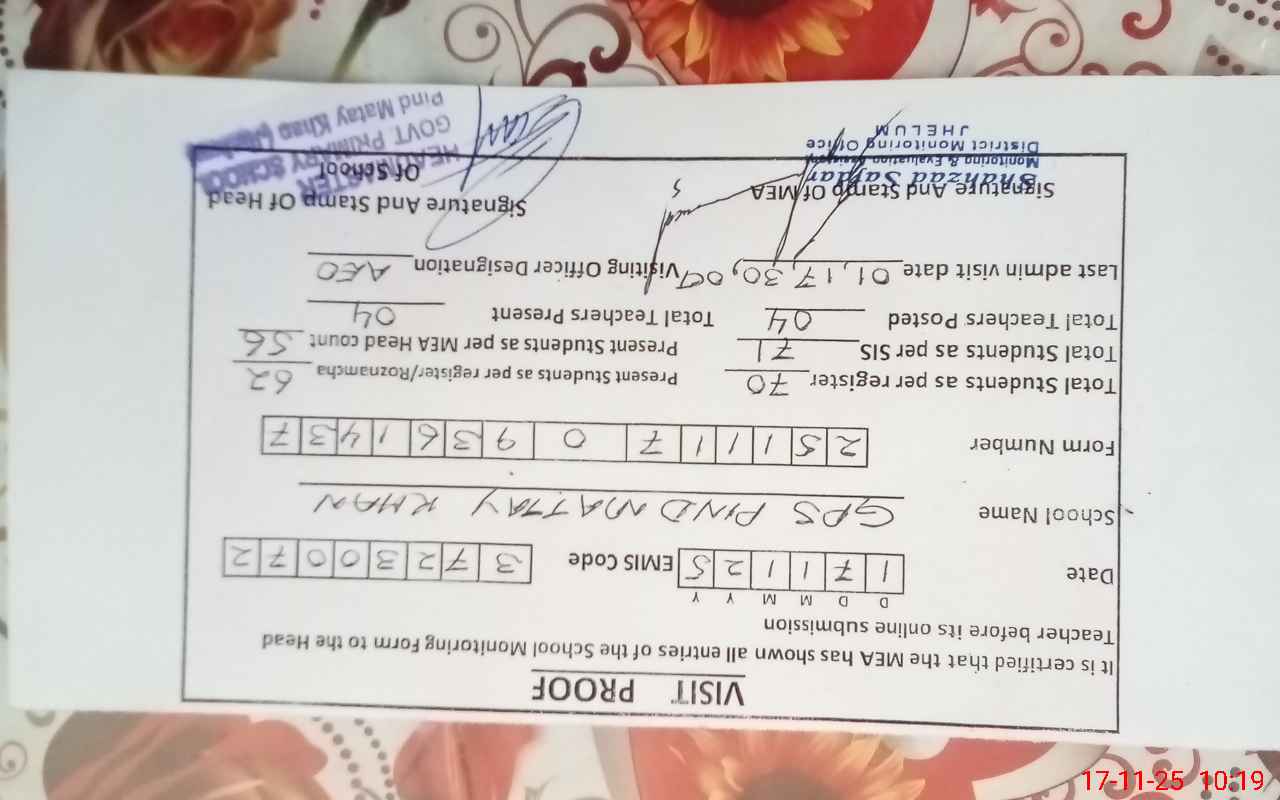 VISIT PROOF
It is certified that the MEA has shown all entries of the School Monitoring Form to the Head
Teacher before its online submission
D D M M Y Y
Date 1 7 1 1 2 5 EMIS Code 3 7 2 3 0 0 7 2
School Name GPS PIND MATTAY KHAN
Form Number 2 5 1 1 1 7 0 9 3 6 1 4 3 7
Total Students as per register 70 Present Students as per register/Roznamcha 62
Total Students as per SIS 71 Present Students as per MEA Head count 56
Total Teachers Posted 04 Total Teachers Present 04
Last admin visit date 01, 17, 30, 09 Visiting Officer Designation AEO
Signature And Stamp Of MEA Signature And Stamp Of Head
Of School
Shahzad Safdar
Monitoring & Evaluation
District Monitoring Office
JHELUM
HEADMASTER
GOVT. PRIMARY SCHOOL
Pind Matay Khan
17-11-25 10:19